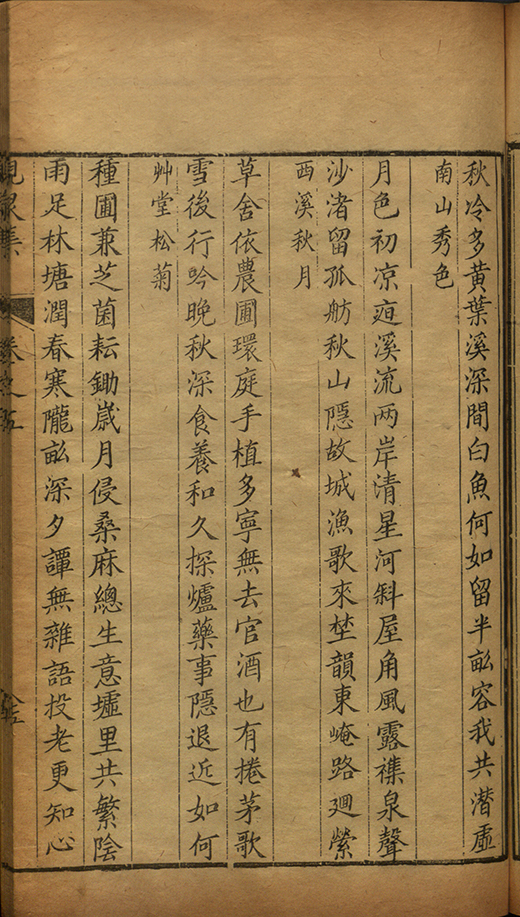 秋冷多黃葉溪深間白魚何如留半畝容我共潛虛
南山秀色
月色初凉逈溪流两岸清星河斜屋角風露襍泉聲
沙渚留孤舫秋山隱故城漁歌來埜韻東崦路迴縈
西溪秋月
草舍依農圃環庭手植多寧無去官酒也有捲茅歌
雪後行吟晚秋深食養和久探爐藥事隱退近如何
艸堂松菊
種圃兼芝菌耘鋤歲月侵桑麻總生意墟里共繁陰
雨足林塘潤春寒隴畝深夕譚無雜語投老更知心
集
卷之五